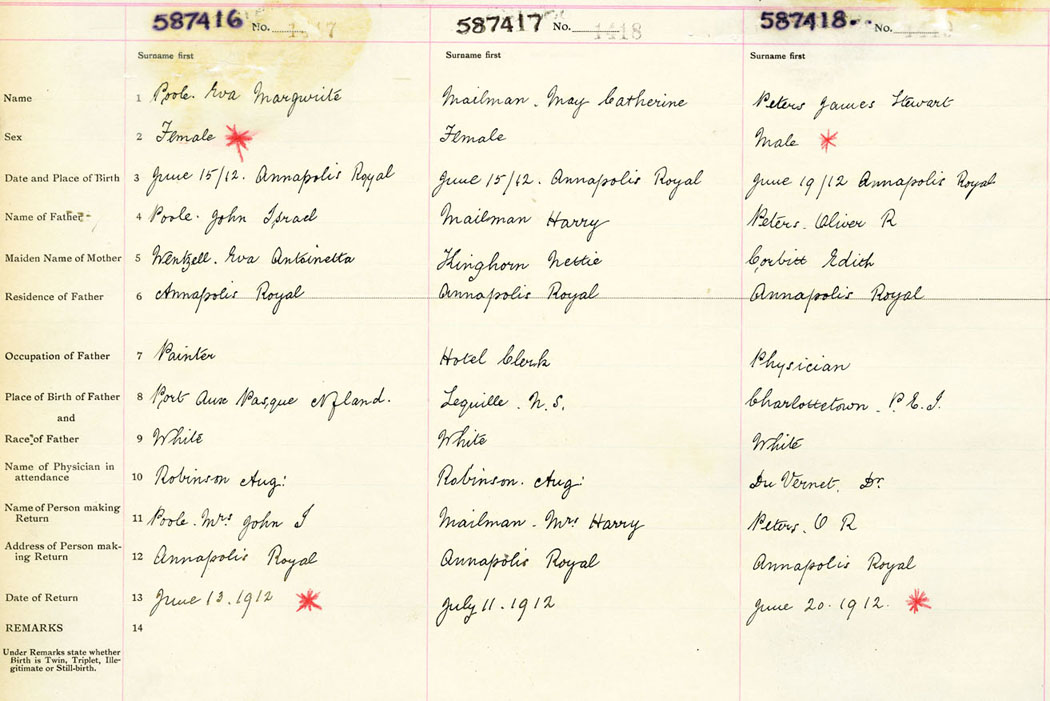 587416 No. 1417 587417 No. 1418 587418 No.
Surname first Surname first Surname first
Name 1 Poole. Eva Margurite Mailman. May Catherine Peters James Stewart
Sex 2 Female Female Male
Date and Place of Birth 3 June 15/12. Annapolis Royal June 15/12. Annapolis Royal June 19/12 Annapolis Royal
Name of Father 4 Poole. John Israel Mailman Harry Peters. Oliver R
Maiden Name of Mother 5 Wentzell. Eva Antoinetta Kinghorn Nettie Corbitt Edith
Residence of Father 6 Annapolis Royal Annapolis Royal Annapolis Royal
Occupation of Father 7 Painter Hotel Clerk Physician
Place of Birth of Father 8 Port Aux Pasque Nfland. Lequille. N.S. Charlottetown. P.E.I.
and
Race of Father 9 White White White
Name of Physician in
attendance 10 Robinson Aug: Robinson. Aug: Du Vernet. Dr.
Name of Person making
Return 11 Poole. Mrs John I Mailman. Mrs Harry Peters. O R
Address of Person mak-
ing Return 12 Annapolis Royal Annapolis Royal Annapolis Royal
Date of Return 13 June 13.1912 July 11.1912 June 20.1912.
REMARKS 14
Under Remarks state whether
Birth is Twin, Triplet, Ille-
gitimate or Still-birth.